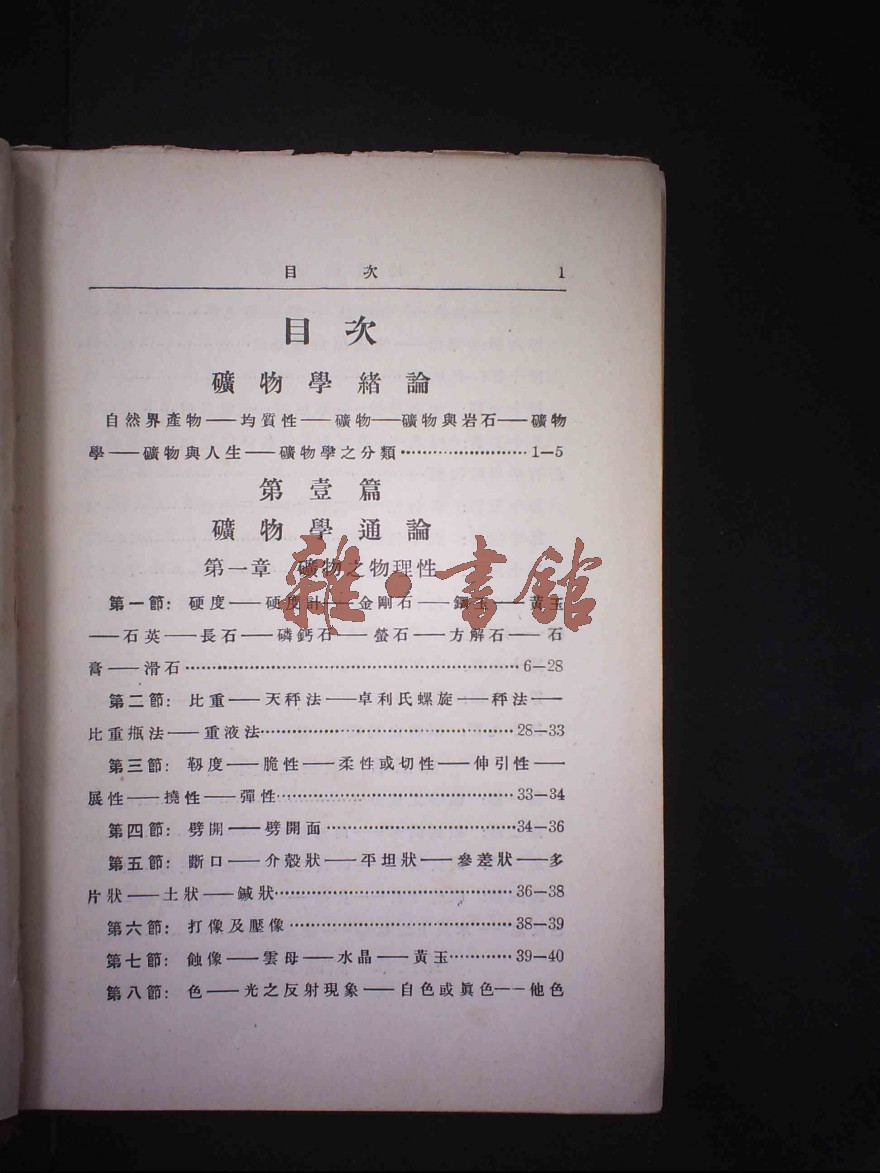 目次 1
目次
礦物學緒論
自然界產物——均質性——礦物——礦物與岩石——礦物
學——礦物與人生——礦物學之分類························1—5
第壹篇
礦物學通論
第一章 礦物之物理性
雜·書館
第一節：硬度——硬度計——金剛石——鋼玉——黃玉
——石英——長石——磷鈣石——螢石——方解石——石
膏——滑石························6—28
第二節：比重——天秤法——卓利氏螺旋——秤法——
比重瓶法——重液法························28—33
第三節：靱度——脆性——柔性或切性——伸引性——
展性——撓性——彈性························33—34
第四節：劈開——劈開面························34—36
第五節：斷口——介殼狀——平坦狀——參差狀——多
片狀——土狀——鍼狀························36—38
第六節：打像及壓像························38—39
第七節：蝕像——雲母——水晶——黃玉············39—40
第八節：色——光之反射現象——自色或眞色——他色